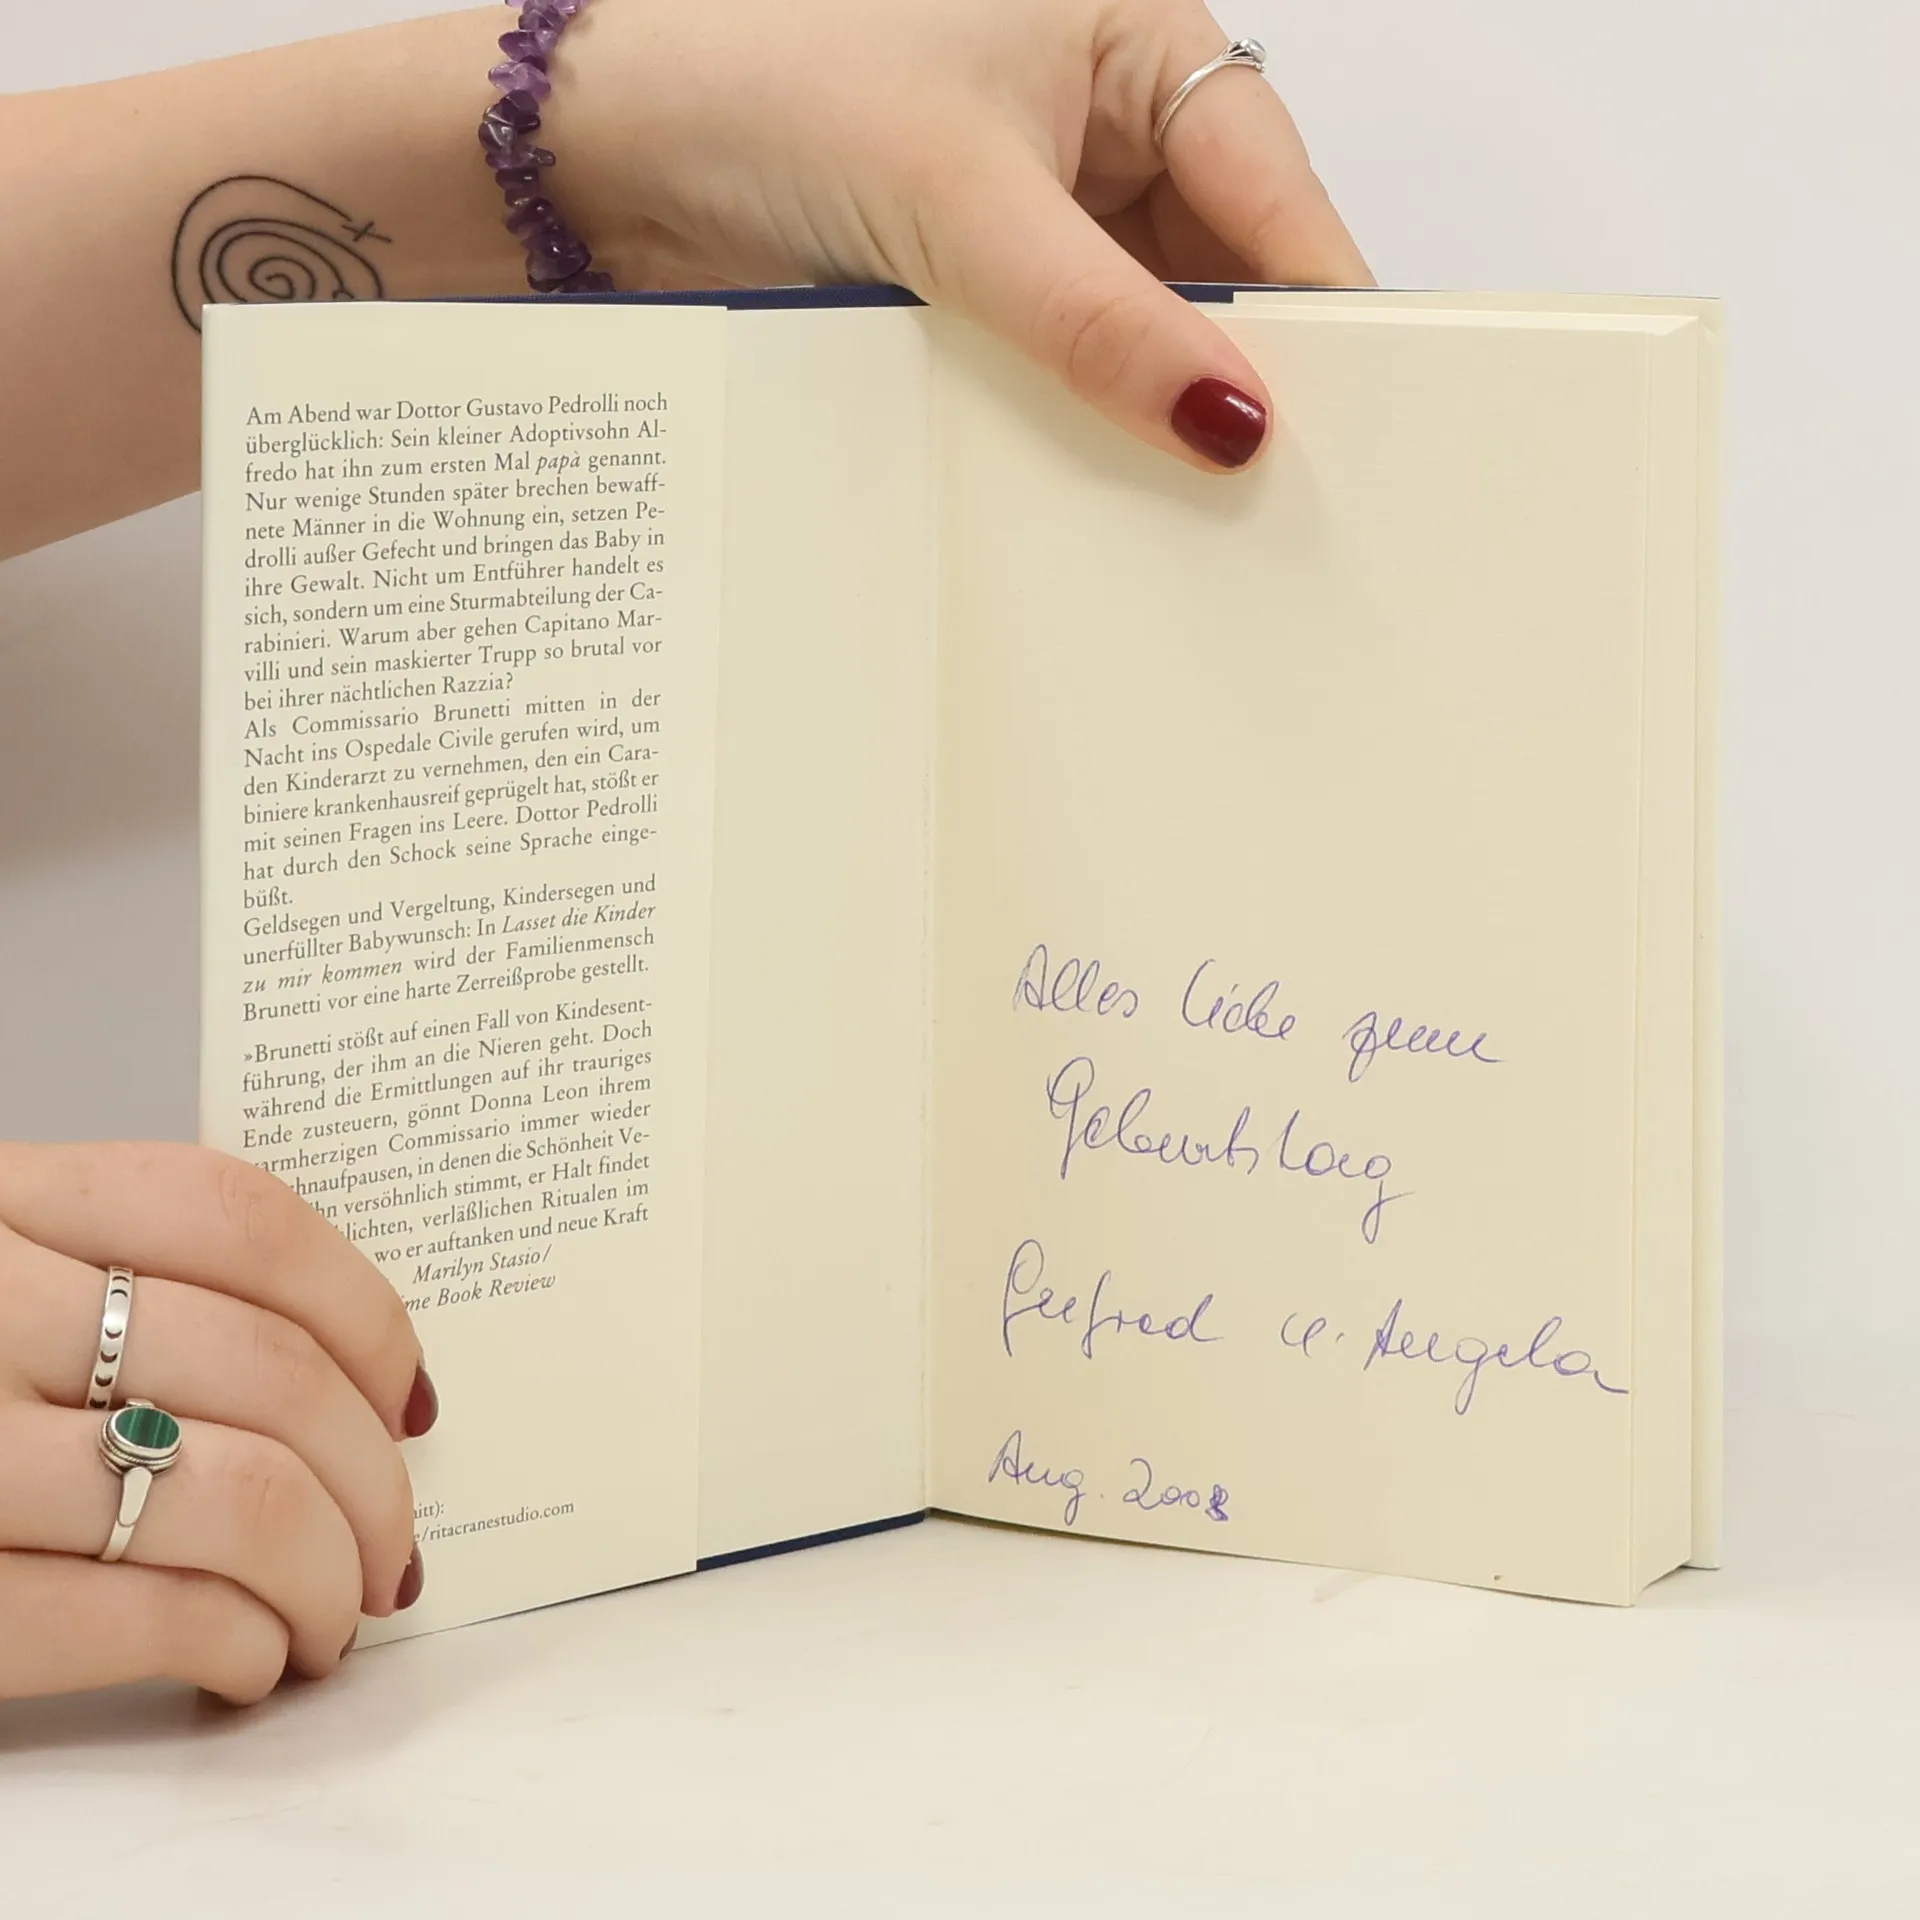 Am Abend war Dottor Gustavo Pedrolli noch
überglücklich: Sein kleiner Adoptivsohn Al-
fredo hat ihn zum ersten Mal papà genannt.
Nur wenige Stunden später brechen bewaff-
nete Männer in die Wohnung ein, setzen Pe-
drolli außer Gefecht und bringen das Baby in
ihre Gewalt. Nicht um Entführer handelt es
sich, sondern um eine Sturmabteilung der Ca-
rabinieri. Warum aber gehen Capitano Mar-
villi und sein maskierter Trupp so brutal vor
bei ihrer nächtlichen Razzia?
Als Commissario Brunetti mitten in der
Nacht ins Ospedale Civile gerufen wird, um
den Kinderarzt zu vernehmen, den ein Cara-
biniere krankenhausreif geprügelt hat, stößt er
mit seinen Fragen ins Leere. Dottor Pedrolli
hat durch den Schock seine Sprache einge-
büßt.
Geldsegen und Vergeltung, Kindersegen und
unerfüllter Babywunsch: In Lasset die Kinder
zu mir kommen wird der Familienmensch
Brunetti vor eine harte Zerreißprobe gestellt.
»Brunetti stößt auf einen Fall von Kindesent-
führung, der ihm an die Nieren geht. Doch
während die Ermittlungen auf ihr trauriges
Ende zusteuern, gönnt Donna Leon ihrem
armherzigen Commissario immer wieder
hnaufpausen, in denen die Schönheit Ve-
hn versöhnlich stimmt, er Halt findet
lichten, verläßlichen Ritualen im
wo er auftanken und neue Kraft
Marilyn Stasio/
me Book Review
itt):
/ritacranestudio.com
Alles Liebe zum
Geburtstag
u. Angela
Aug. 2008